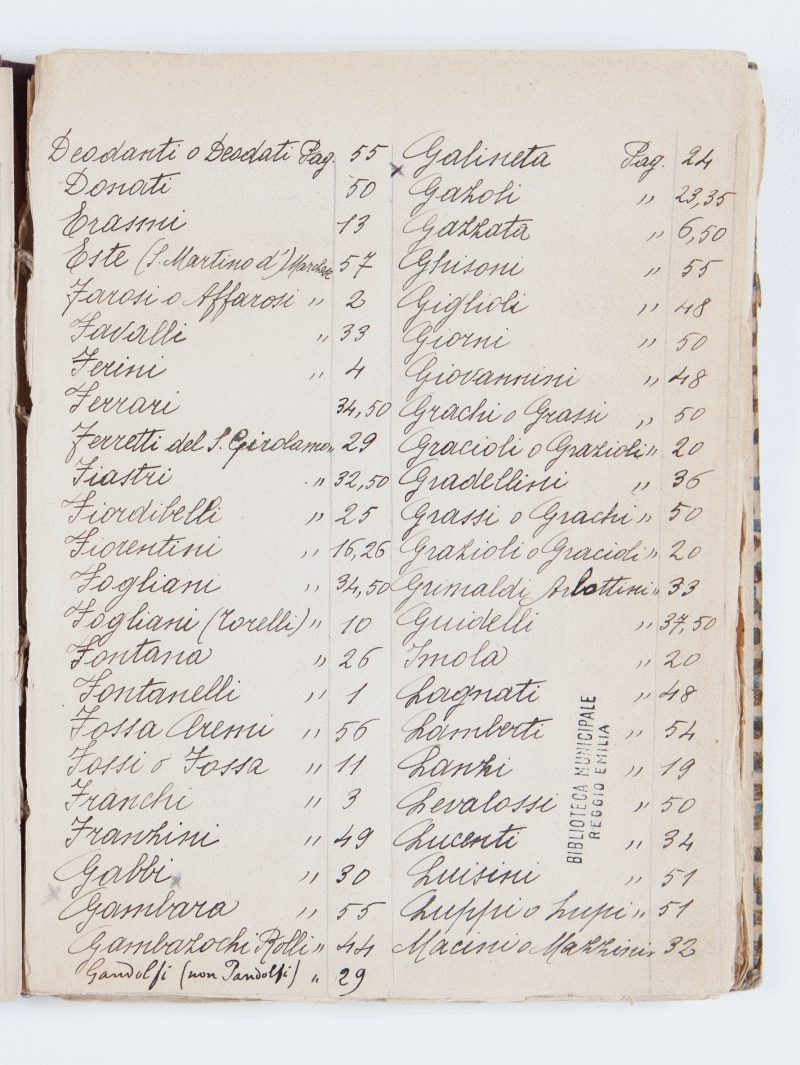 Deodanti o Deodati Pag. 55
Donati 50
Erasmi 13
Este (S. Martino d') Marchese 57
Farosi o Affarosi " 2
Favalli " 33
Ferini " 4
Ferrari 34,50
Ferretti del S. Girolamo " 29
Fiastri " 32,50
Fiordibelli " 25
Fiorentini " 16,26
Fogliani " 34,50
Fogliani (Torelli) " 10
Fontana " 26
Fontanelli " 1
Fossa Cremi " 56
Fossi o Fossa " 11
Franchi " 3
Franzini " 49
Gabbi " 30
Gambara " 55
Gambazochi Rolli " 44
Gandolfi (non Pandolfi) " 29
Galineta Pag. 24
Gazoli " 23,35
Gazzata " 6,50
Ghisoni " 55
Giglioli " 48
Giorni " 50
Giovannini " 48
Grachi o Grassi " 50
Gracioli o Grazioli " 20
Gradellini " 36
Grassi o Grachi " 50
Grazioli o Gracioli " 20
Grimaldi Arlottini " 33
Guidelli " 37,50
Imola " 20
Lagnati " 48
Lamberti " 54
Lanzi " 19
Levalossi " 50
Lucenti " 34
Luisini " 51
Luppi o Lupi " 51
Macini o Mazzini " 32
BIBLIOTECA MUNICIPALE
REGGIO EMILIA